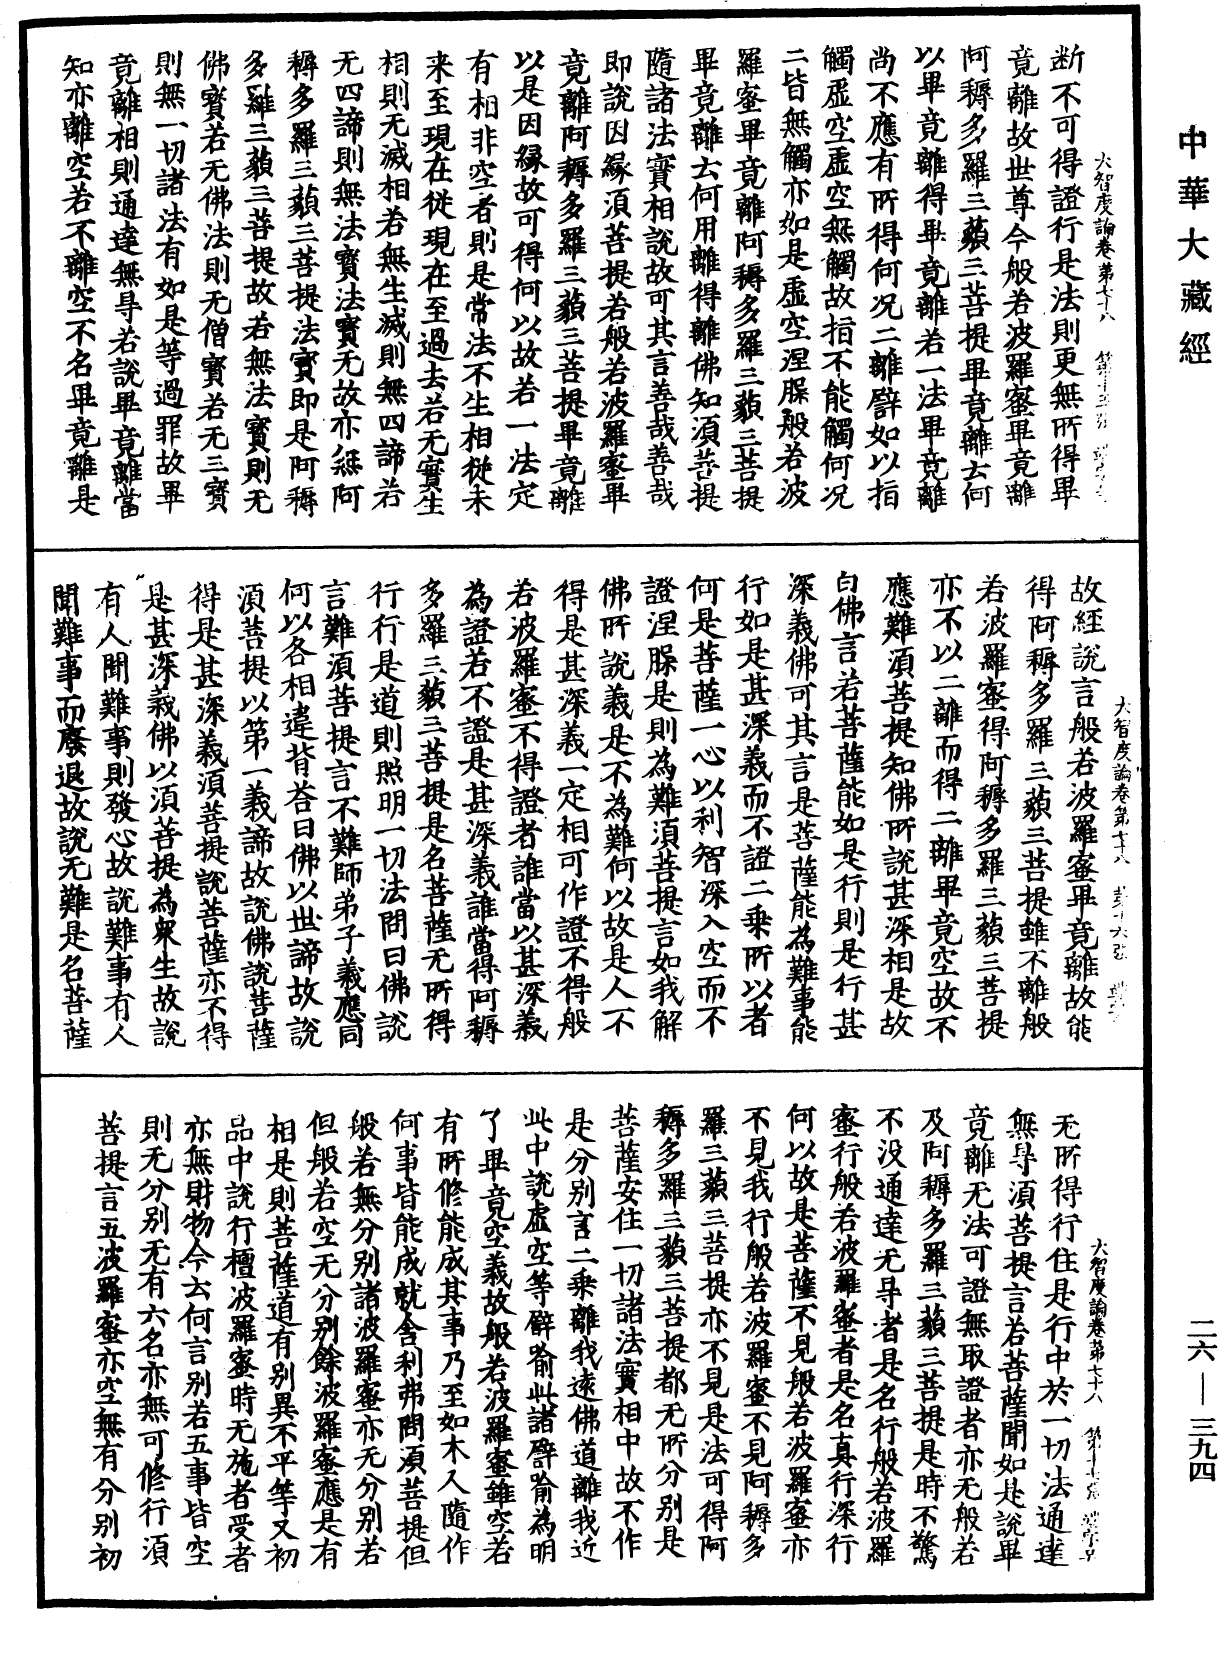 中華大藏經
大智度論卷第七十八
断不可得證行是法則更無所得畢
竟離故世尊今般若波羅蜜畢竟離
阿耨多羅三藐三菩提畢竟離云何
以畢竟離得畢竟離若一法畢竟離
尚不應有所得何况二離譬如以指
觸虛空虛空無觸故指不能觸何况
二皆無觸亦如是虛空涅槃般若波
羅蜜畢竟離阿耨多羅三藐三菩提
畢竟離云何用離得離佛知湏菩提
隨諸法實相說故可其言善哉善哉
即說因緣湏菩提若般若波羅蜜畢
竟離阿耨多羅三藐三菩提畢竟離
以是因緣故可得何以故若一法定
有相非空者則是常法不生相從未
来至現在從現在至過去若无實生
相則无滅相若無生滅則無四諦若
无四諦則無法寶法寶无故亦無阿
耨多羅三藐三菩提法寶即是阿耨
多羅三藐三菩提故若無法寶則无
佛寶若无佛法則无僧寶若无三寶
則無一切諸法有如是等過罪故畢
竟離相則通達無㝵若說畢竟離當
知亦離空若不離空不名畢竟離是
大智度論卷第七十八 第十六張
故經說言般若波羅蜜畢竟離故能
得阿耨多羅三藐三菩提雖不離般
若波羅蜜得阿耨多羅三藐三菩提
亦不以二離而得二離畢竟空故不
應難湏菩提知佛所說甚深相是故
白佛言若菩薩能如是行則是行甚
深義佛可其言是菩薩能為難事能
行如是甚深義而不證二乗所以者
何是菩薩一心以利智深入空而不
證涅槃是則為難湏菩提言如我解
佛所說義是不為難何以故是人不
得是甚深義一定相可作證不得般
若波羅蜜不得證者誰當以甚深義
為證若不證是甚深義誰當得阿耨
多羅三藐三菩提是名菩薩无所得
行行是道則照明一切法問曰佛說
言難湏菩提言不難師弟子義應同
何以各相違背荅曰佛以世諦故說
湏菩提以第一義諦故說佛說菩薩
得是甚深義湏菩提說菩薩亦不得
是甚深義佛以湏菩提為眾生故說
有人聞難事則發心故說難事有人
聞難事而廢退故說无難是名菩薩
大智度論卷第七十八 第十七張
无所得行住是行中於一切法通達
無㝵湏菩提言若菩薩聞如是說畢
竟離无法可證無取證者亦无般若
及阿耨多羅三藐三菩提是時不驚
不没通達无㝵者是名行般若波羅
蜜行般若波羅蜜者是名真行深行
何以故是菩薩不見般若波羅蜜亦
不見我行般若波羅蜜不見阿耨多
羅三藐三菩提亦不見是法可得阿
耨多羅三藐三菩提都无所分別是
菩薩安住一切諸法實相中故不作
是分別言二乗離我遠佛道離我近
此中說虛空等譬喻此諸譬喻為明
了畢竟空義故般若波羅蜜雖空若
有所修能成其事乃至如木人隨作
何事皆能成就舍利弗問湏菩提但
般若無分別諸波羅蜜亦无分別若
但般若空无分別餘波羅蜜應是有
相是則菩薩道有別異不平等又初
品中說行檀波羅蜜時无施者受者
亦無財物今云何言別若五事皆空
則无分別无有六名亦無可修行湏
菩提言五波羅蜜亦空無有分別初
二六—三九四